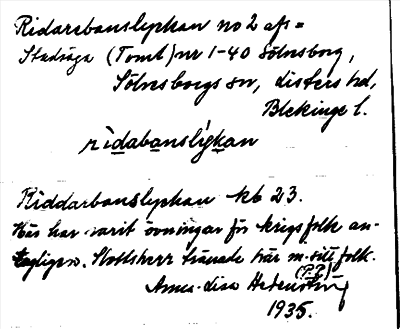 Ridarebanslyckan no 2 afs=
Stadsäga (Tomt) nr 1-40 Sölvesborg,
Sölvesborgs sn, Listers hd,
Blekinge l.
ridabanslykan
Riddarbanslyckan kb 23.
Här har varit övningar för krigsfolk an-
tagligen. Slottsherr tränade här m. sitt folk.
(P.P.)
Anna-Lisa
1935.